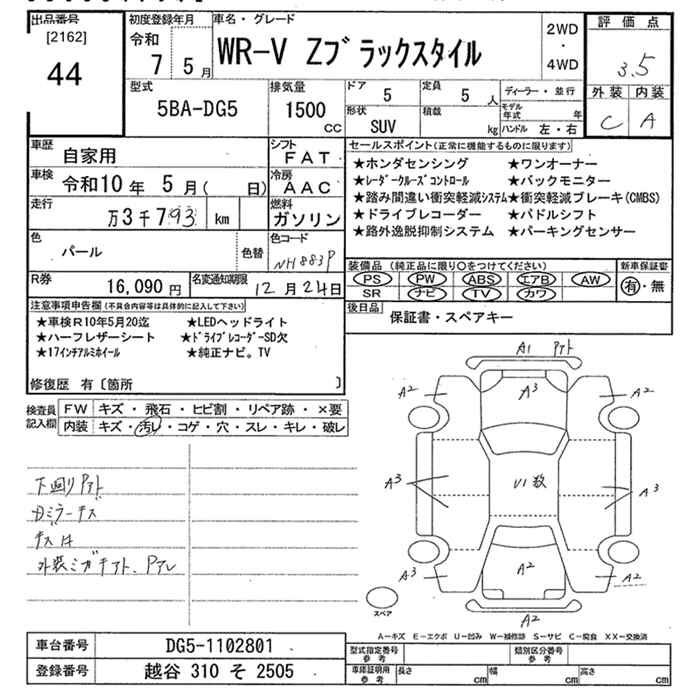 出品番号
[2162]
44
初度登録年月
令和
7 5月
車名・グレード
WR-V Zブラックスタイル
2WD
・
4WD
評価点
3.5
外装 内装
C A
型式
5BA-DG5
排気量
1500
CC
ドア
5
定員
5 人
形状
SUV
積載
kg
ディーラー・並行
モデル年式 年
ハンドル 左・右
車歴
自家用
シフト
FAT
車検
令和10年 5月( 日)
冷房
AAC
走行
万3千793 km
燃料
ガソリン
色
パール
色替
色コード
NH883P
R券
16,090円
名変通知期限
12月24日
セールスポイント(正常に機能するものに限ります)
★ホンダセンシング ★ワンオーナー
★レーダークルーズコントロール ★バックモニター
★踏み間違い衝突軽減システム★衝突軽減ブレーキ(CMBS)
★ドライブレコーダー ★パドルシフト
★路外逸脱抑制システム ★パーキングセンサー
装備品(純正品に限り○をつけてください)
PS PW ABS エアB AW
SR ナビ TV カワ
新車保証書
有・無
後日品
保証書・スペアキー
注意事項申告欄(不具合内容等は具体的に記入して下さい)
★車検R10年5月20迄 ★LEDヘッドライト
★ハーフレザーシート ★ドライブレコーダーSD欠
★17インチアルミホイール ★純正ナビ。TV
修復歴 有〔箇所 〕
検査員
記入欄
FW キズ・飛石・ヒビ割・リペア跡・×要
内装 キズ・汚レ・コゲ・穴・スレ・キレ・破レ
下廻りPアト
Dミラーキス
キズ ハ
外装ミガキアト、Pアレ
A1 Pアト
A2
A3
A2
A3
U1 数
A3
A3
A2
A2
A2
スペア
A−キズ E−エクボ U−凹み W−補修跡 S−サビ C−腐食 XX−交換済
車台番号
DG5-1102801
登録番号
越谷 310 そ 2505
型式指定番号
参考
類別区分番号
参考
車庫証明用
参考
長さ cm
幅 cm
高さ cm